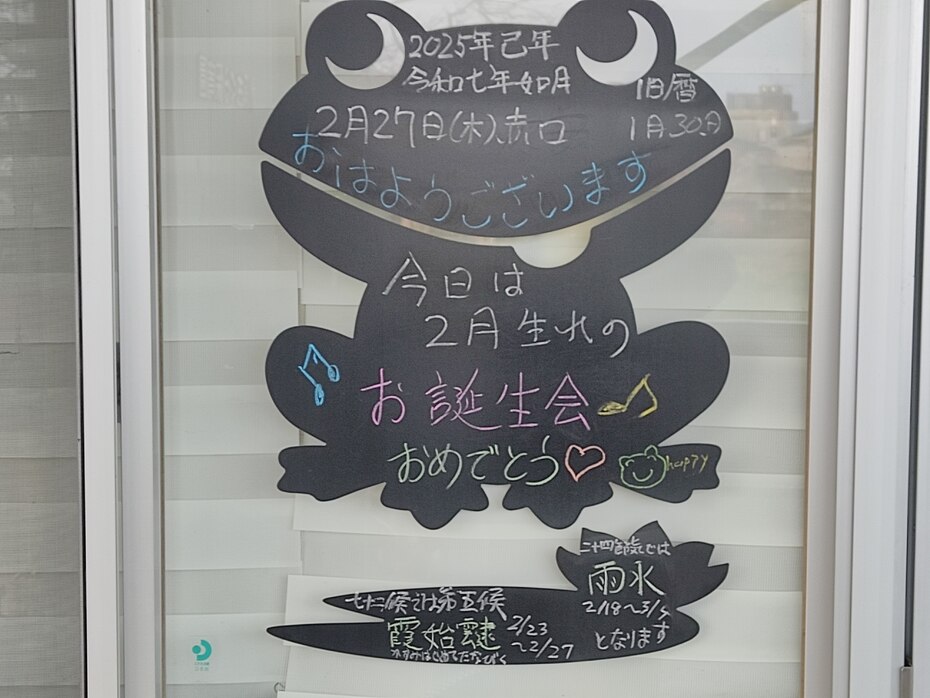 2025年己年
令和七年如月
旧暦
2月27日(木)、赤口
1月30日
おはようございます
今日は
2月生れの
お誕生会
おめでとう♡
happy
二十四節気では
雨水
2/18〜3/4
となります
七十二候では第五候
霞始靆
2/23
〜2/27
かすみはじめてたなびく